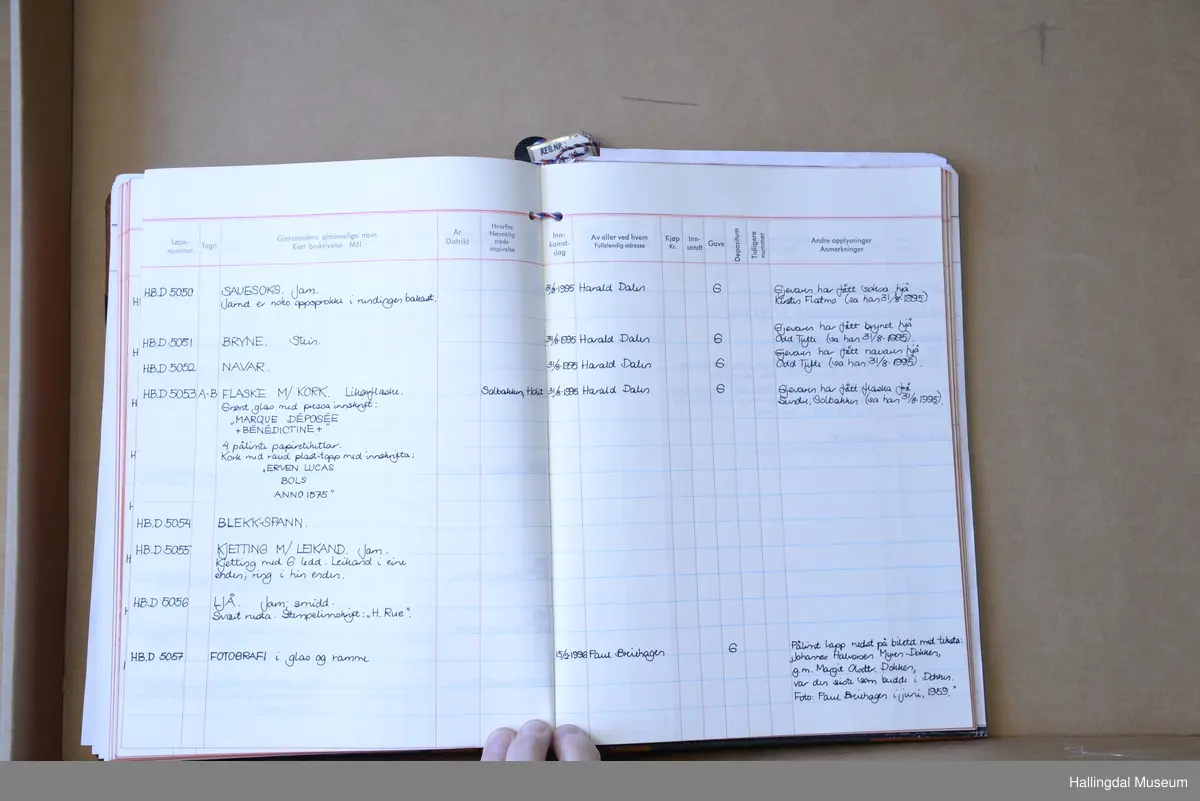 REG.NR.
Løpe-
nummer
Tegn
Gjenstandens alminnelige navn
Kort beskrivelse Mål
År
Distrikt
Hvorfra
Nøyaktig
steds-
angivelse
Inn-
komst-
dag
Av eller ved hvem
Fullstendig adresse
Kjøp
Kr.
Inn-
sendt
Gave
Depositum
Tidligere
nummer
Andre opplysninger
Anmerkninger
HB.D 5050 SAUESOKS. Jarn. 31/8-1995 Harald Dalen G Gjevaren har fått soksa hjå
Jarnet er noko oppsprokke i rundingen bakast. Kirsten Flatmo (sa han 31/8-1995)
HB.D 5051 BRYNE. Stein. 31/8-1995 Harald Dalen G Gjevaren har fått brynet hjå
Odd Tufte (sa han 31/8-1995).
HB.D 5052 NAVAR. 31/8-1995 Harald Dalen G Gjevaren har fått navaren hjå
Odd Tufte (sa han 31/8-1995).
HB.D 5053 A-B FLASKE M/ KORK. Likørflaske. Solbakken, Holet 31/8-1995 Harald Dalen G Gjevaren har fått flaska frå
Grønt glas med pressa innskrift: Sundre, Solbakken (sa han 31/8-1995).
„MARQUE DÉPOSÉE
+BÉNÉDICTINE+"
4 pålimte papiretikettar.
Kork med raud plast-topp med innskrifta:
„ERVEN LUCAS
BOLS
ANNO 1575"
HB.D 5054 BLEKK-SPANN.
HB.D 5055 KJETTING M/ LEIKAND. Jarn.
Kjetting med 6 ledd. Leikand i eine
enden, ring i hin enden.
HB.D 5056 LJÅ. Jarn, smidd.
Svært rusta. Stempelinnskrift: „H. Rue".
HB.D 5057 FOTOGRAFI i glas og ramme 15/2-1996 Paul Breiehagen G Pålimt lapp nedst på biletet med teksta:
„Johannes Halvorsen Myren-Dokken,
g.m. Margit Olsdtr. Dokken,
var den siste som budde i Dokken.
Foto: Paul Breiehagen i juni, 1959."
Hallingdal Museum